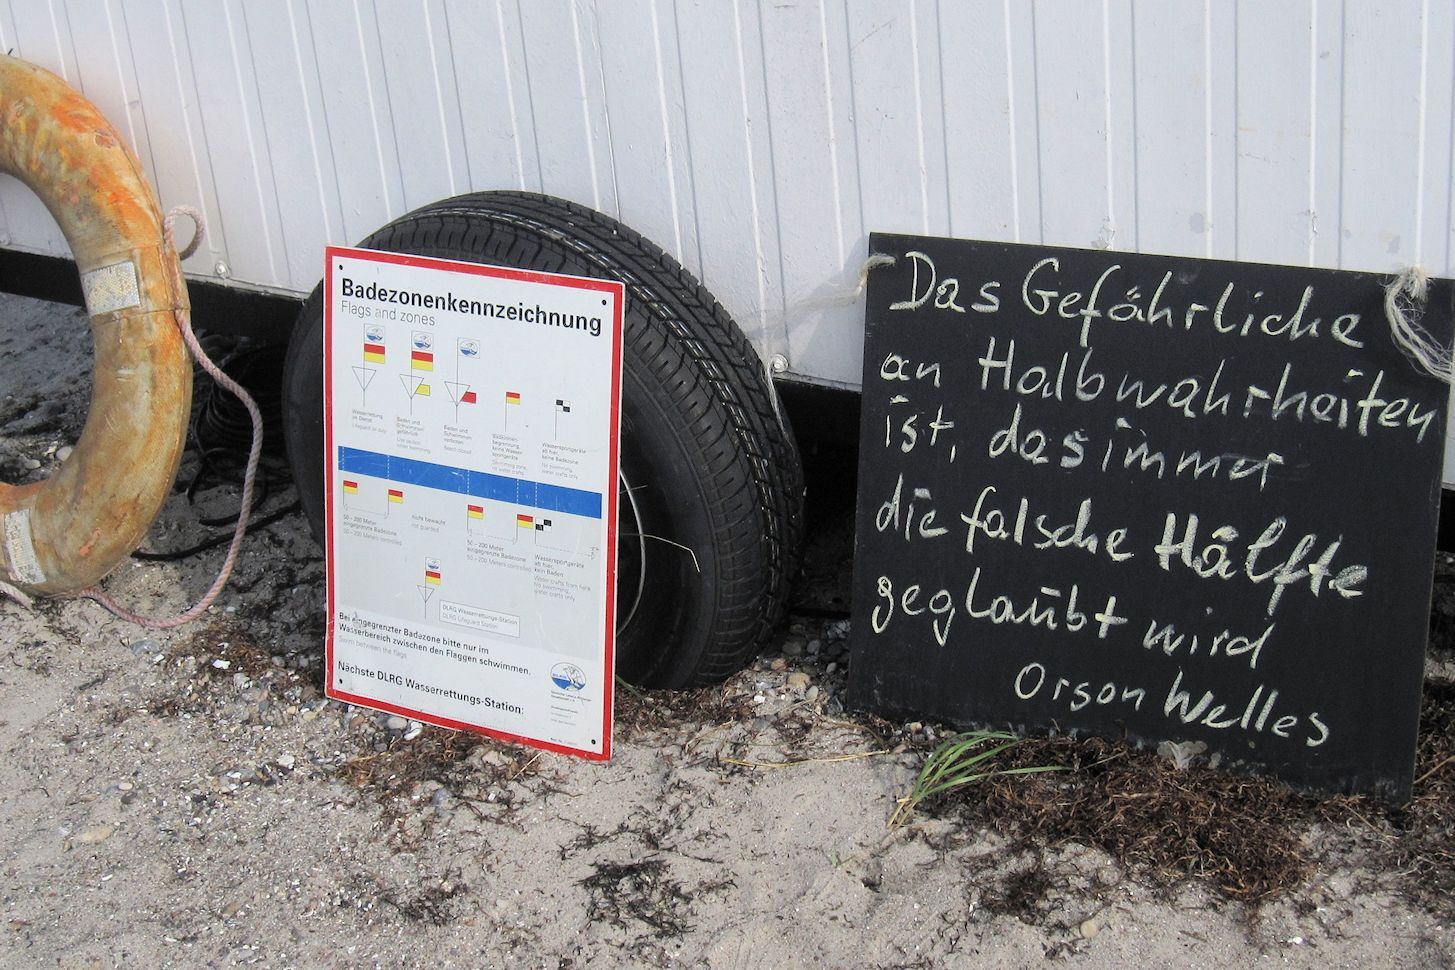 Badezonenkennzeichnung
Flags and zones
Wasserrettung
im Dienst
Lifeguard on duty
Baden und
Schwimmen
gefährlich
Baden und
Schwimmen
verboten
Beach closed
Badezonen-
begrenzung,
keine Wasser
sportgeräte
Swimming zone,
no water crafts
Wassersportgeräte
ab hier,
keine Badezone
No swimming,
water crafts only
50 - 200 Meter
eingegrenzte Badezone
50 - 200 Meters controlled
nicht bewacht
not guarded
50 - 200 Meter
eingegrenzte Badezone
50 - 200 Meters controlled
Wassersportgeräte
ab hier,
kein Baden
Water crafts from here
No swimming,
water crafts only
DLRG Wasserrettungs-Station
DLRG Lifeguard Station
Bei eingegrenzter Badezone bitte nur im
Wasserbereich zwischen den Flaggen schwimmen.
Swim between the flags
Nächste DLRG Wasserrettungs-Station:
Das Gefährliche
an Halbwahrheiten
ist, das immer
die falsche Hälfte
geglaubt wird
Orson Welles